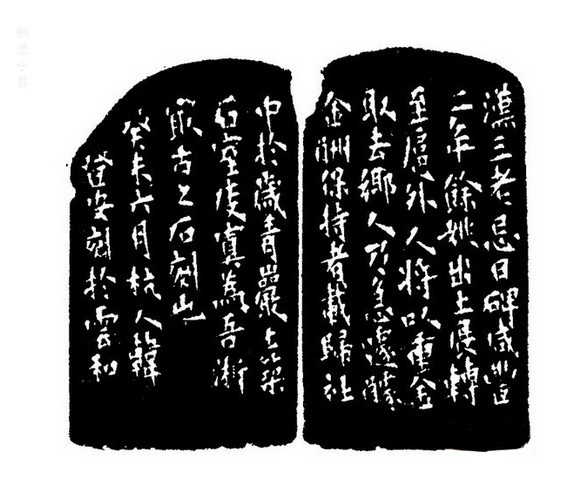 漢三老忌日碑咸豐
二年餘姚出土展轉
至扈外人將以重金
取去鄉人乃急遽醵
金酬保持者載歸社
中於歲青巖上築
石室度寘為吾浙
最古之石刻也
癸未六月杭人韓
登安刻於雲和